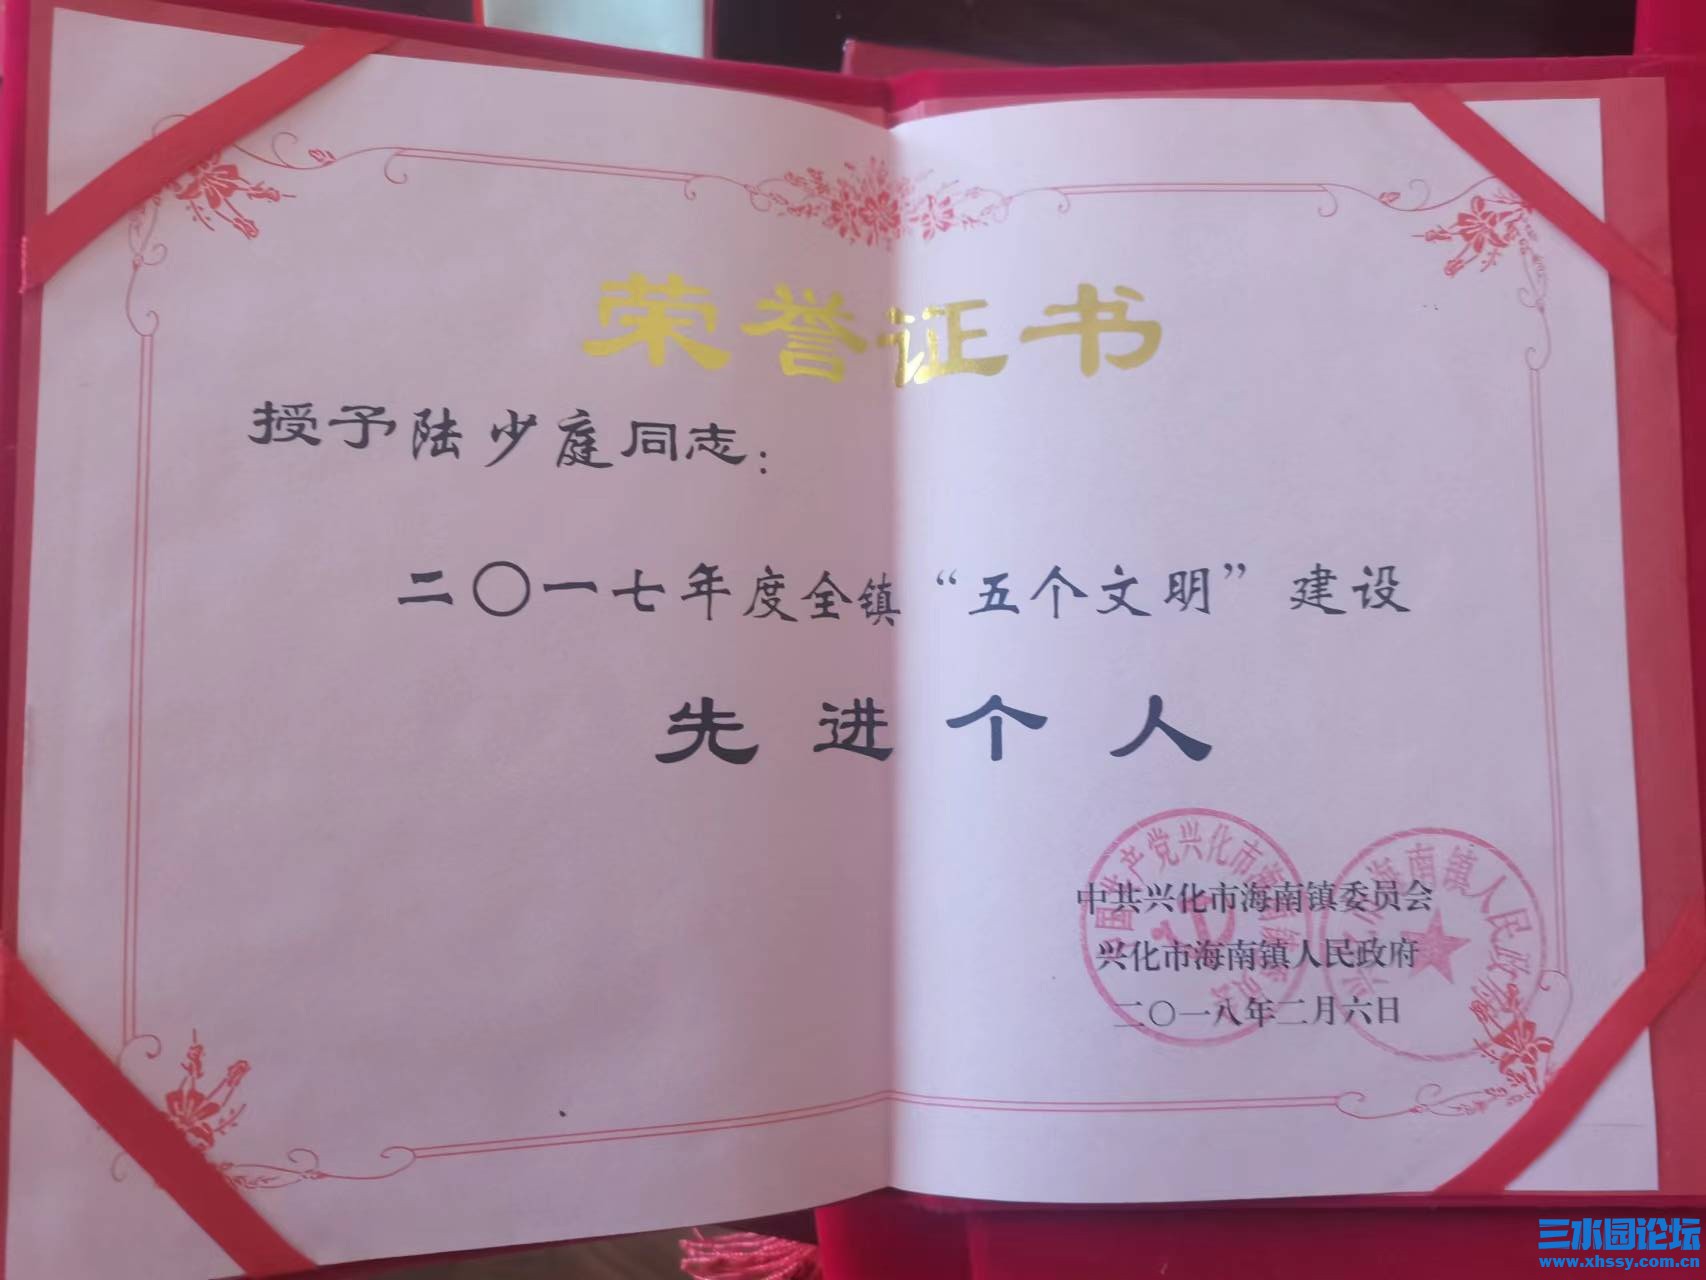 荣誉证书
授予陆少庭同志：
二〇一七年度全镇“五个文明”建设
先进个人
中共兴化市海南镇委员会
兴化市海南镇人民政府
二〇一八年二月六日
国共产党兴化市海南镇委员
海南镇人民政府
三水园论坛
www.xhssy.com.cn